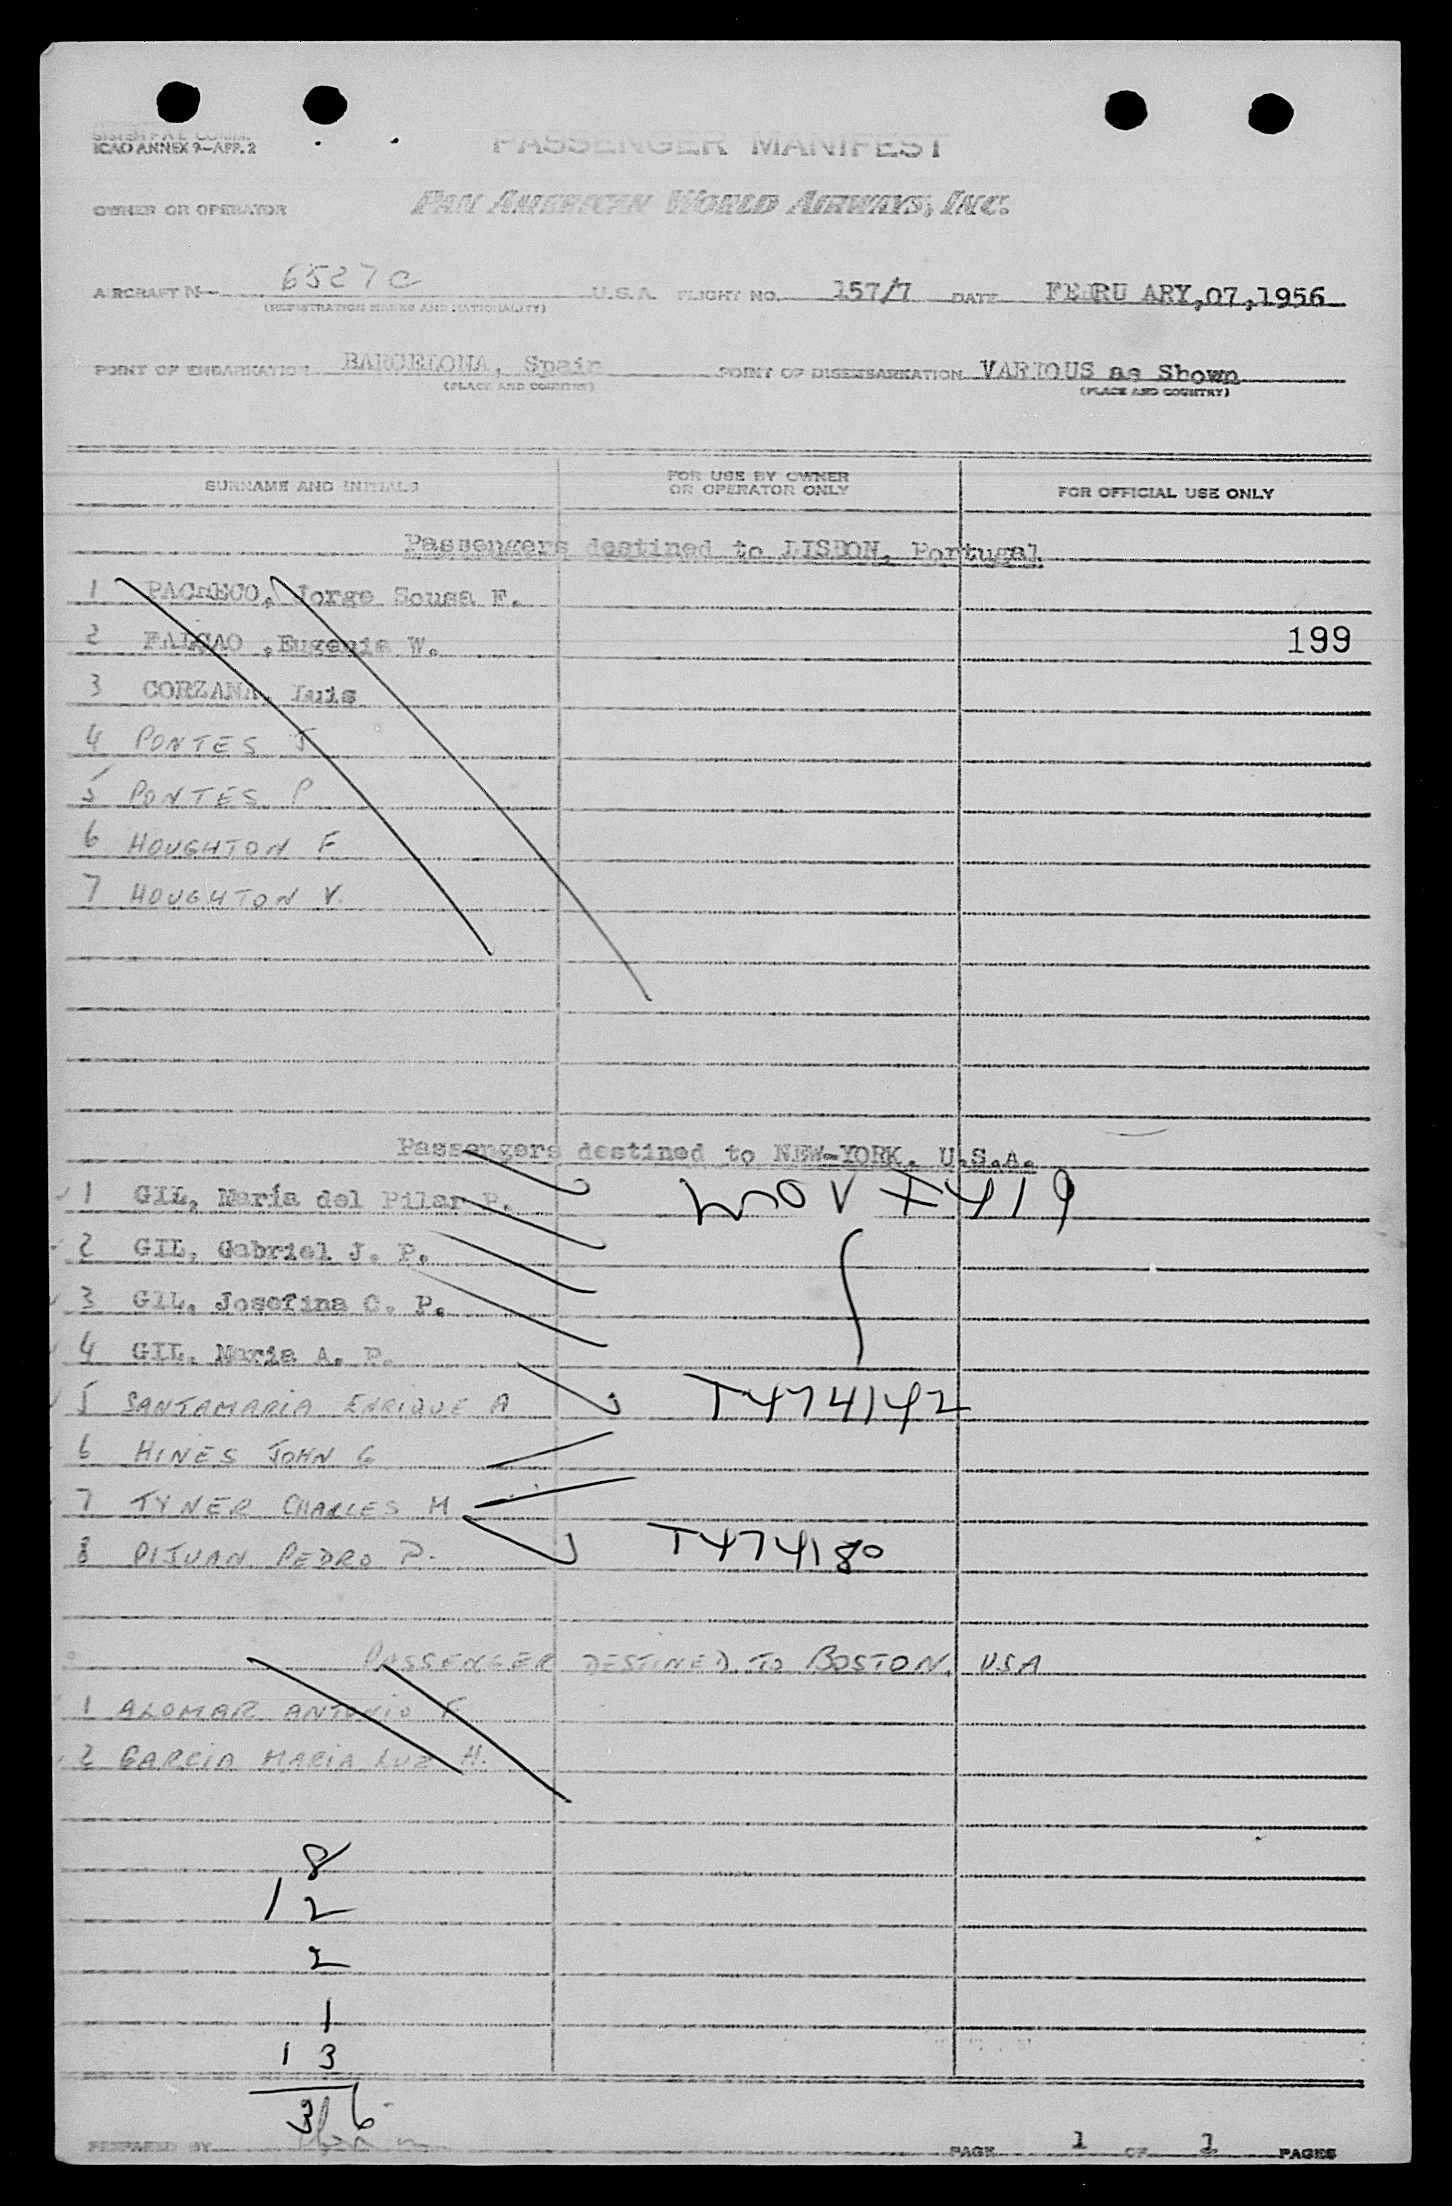 ICAO ANNEX 9—APP. 2
PASSENGER MANIFEST
OWNER OR OPERATOR PAN AMERICAN WORLD AIRWAYS, INC.
AIRCRAFT N— 6527C U.S.A. FLIGHT NO. 157/7 DATE FEBRU ARY,07,1956
(REGISTRATION MARKS AND NATIONALITY)
POINT OF EMBARKATION BARCELONA, Spain POINT OF DISEMBARKATION VARIOUS as Shown
(PLACE AND COUNTRY) (PLACE AND COUNTRY)
SURNAME AND INITIALS FOR USE BY OWNER OR OPERATOR ONLY FOR OFFICIAL USE ONLY
Passengers destined to LISBON, Portugal
1 PACHECO, Jorge Sousa F.
2 FALCAO ,Eugenia W. 199
3 CORZANA, Luis
4 PONTES J
5 PONTES P
6 HOUGHTON F
7 HOUGHTON V.
Passengers destined to NEW-YORK, U.S.A.
1 GIL, María del Pilar P.
2 GIL, Gabriel J. P.
3 GIL, Josefina C. P.
4 GIL, Maria A. P.
5 SANTAMARIA ENRIQUE A T474142
6 HINES JOHN G
7 TYNER CHARLES M
8 PIJUAN PEDRO P. T474180
PASSENGER DESTINED TO BOSTON, USA
1 ALOMAR ANTONIO F.
2 GARCIA MARIA LUZ H.
8
12
2
1
13
36
PREPARED BY PAGE 1 OF 1 PAGES